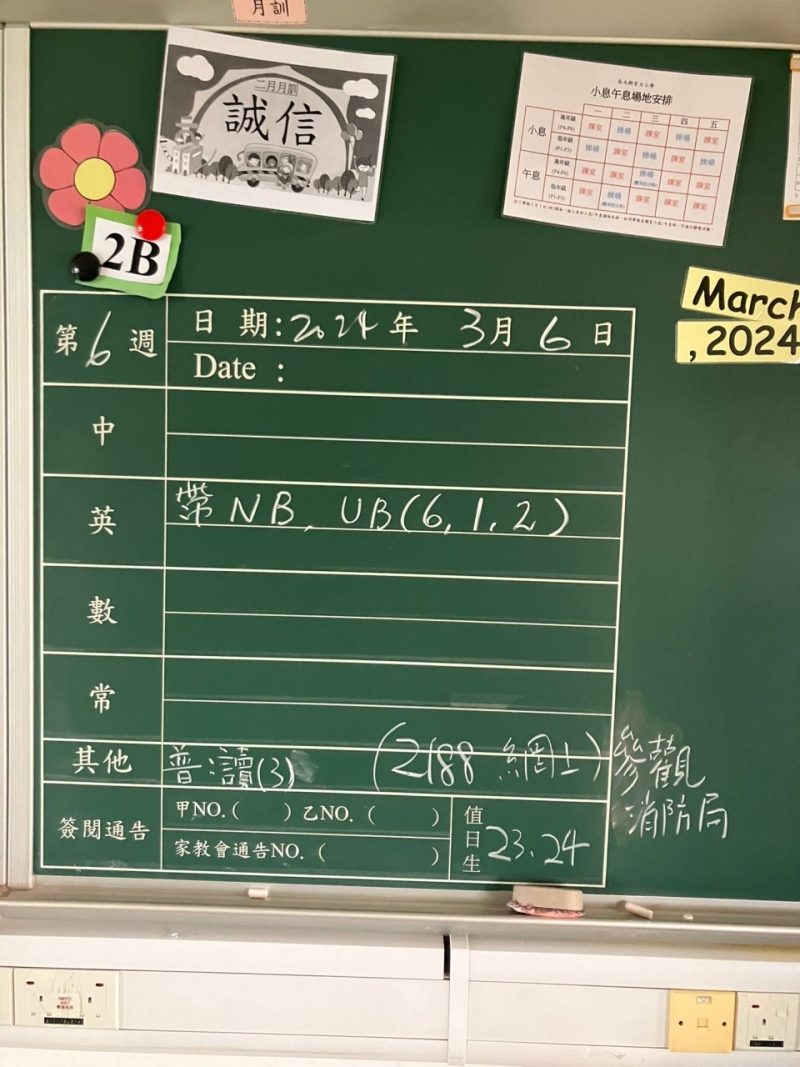 月訓
二月月訓
誠信
小息午息場地安排
一 二 三 四 五
小息 高年級 (P4-P6) 課室 操場 課室 操場 課室
操場 課室 操場 課室 操場
午息 高年級 (P4-P6) 課室 課室 操場 課室 課室
課室 操場 課室 課室 課室
2B
March
, 2024
第6週 日期:2024年 3月6日
Date :
中
英 帶NB, UB(6,1,2)
數
常
其他 普讀(3) (2188 網上) 參觀
消防局
簽閱通告 甲NO.( ) 乙NO.( )
家教會通告NO.( )
值日生 23.24